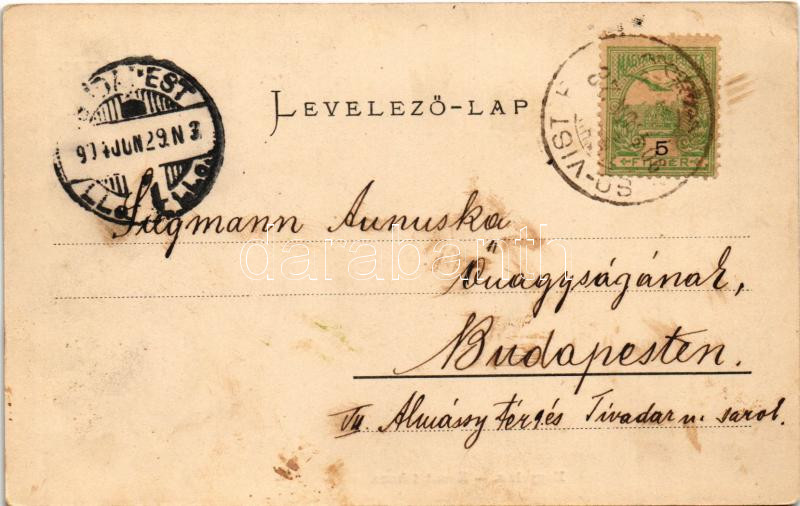 LEVELEZŐ-LAP
BUDAPEST
904 JUN 29. N 3
MAGYAR KIR. POSTA
5
FILLÉR
SÓ-VIST
Siegmann Annuska
Őnagyságának,
Budapesten.
VII Almássy tér és Tivadar u. sarok.
darabanth